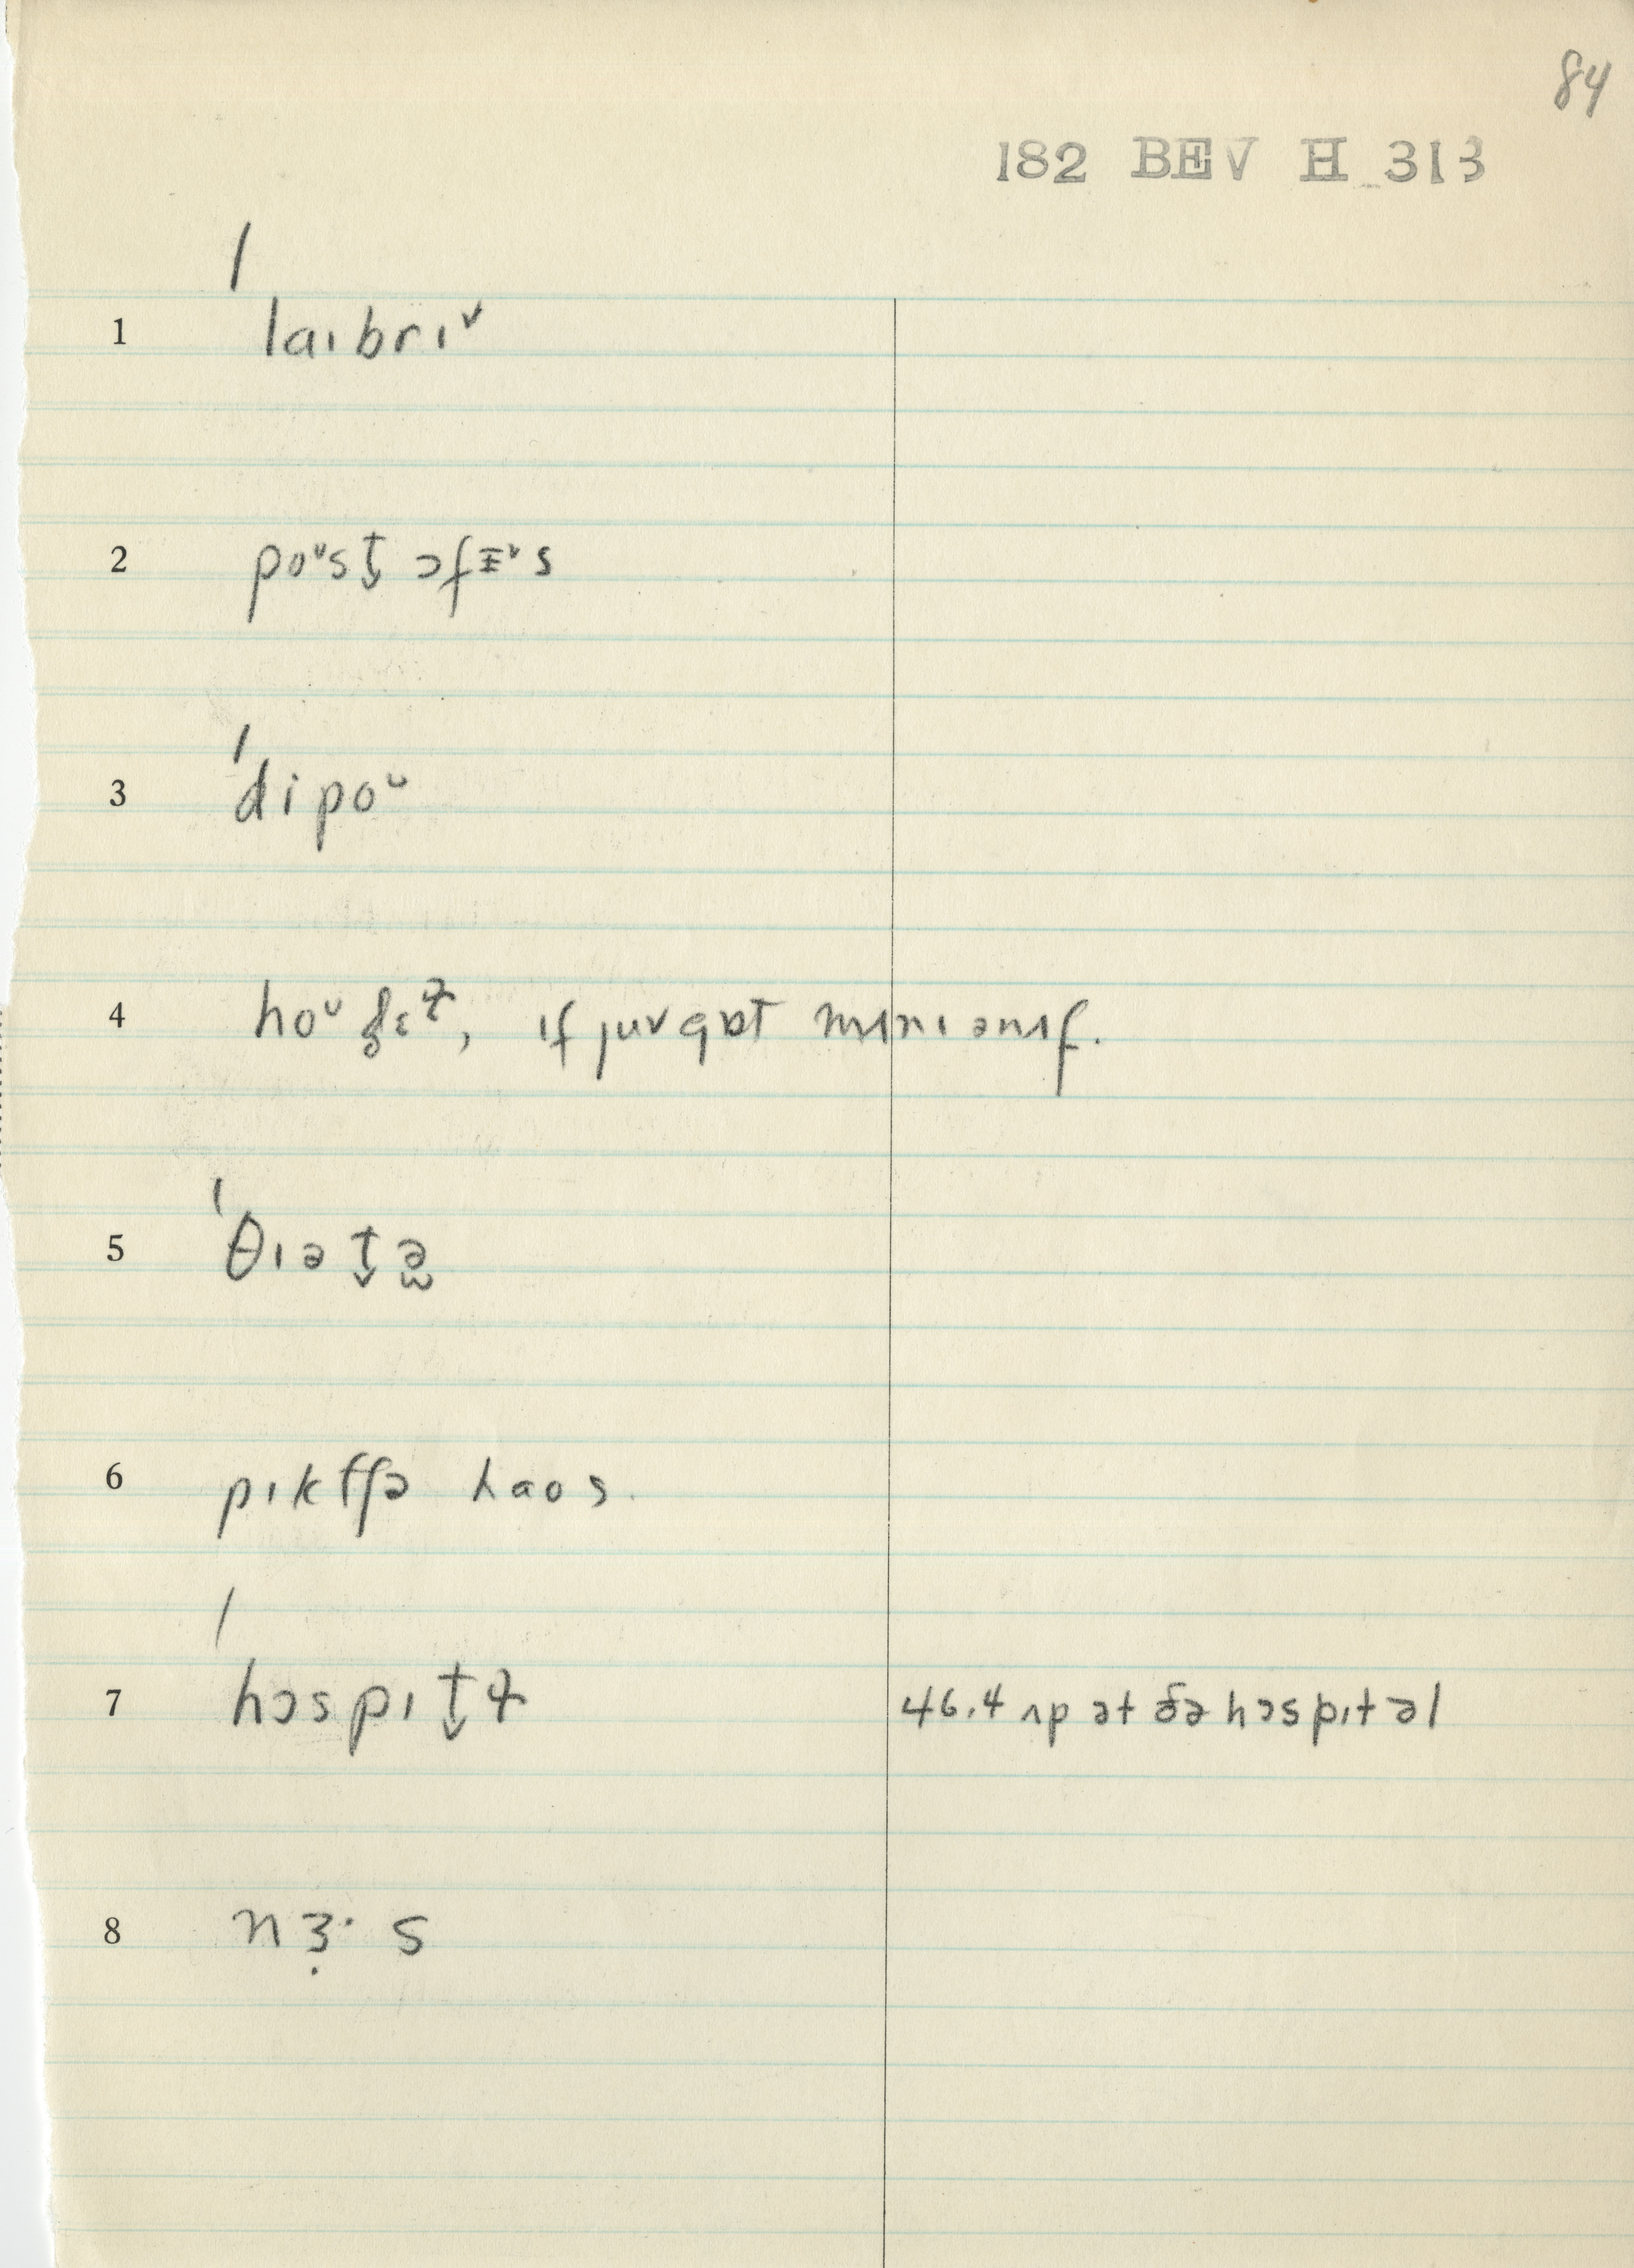 84
182 BEV H 313
1 ˈlaɪbrɪ˅
2 poᵘst̬ ɔfɪ˅s
3 ˈdipoᵘ
4 if juv gɒt mɪnɪ ənɪf.
5 ˈθɪət̬ə
6 pɪktʃə haos
7 ˈhɔspɪt̬ɫ 46.4 ʌp ət ðə hɔspɪtəl
8 nɜ̣· s